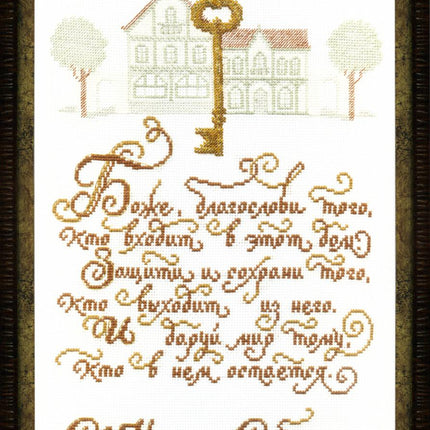 Боже, благослови того,
кто входит в этот дом!
Защити и сохрани того,
кто выходит из него.
И даруй мир тому,
кто в нем остается.